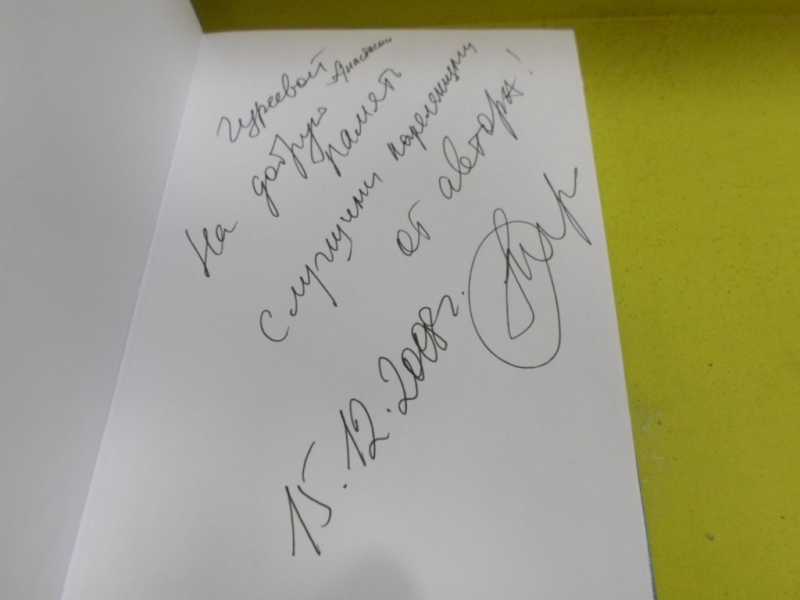 Гуреевой Анастасии
На добрую
память
С лучшими пожеланиями
от автора!
15.12.2008г.